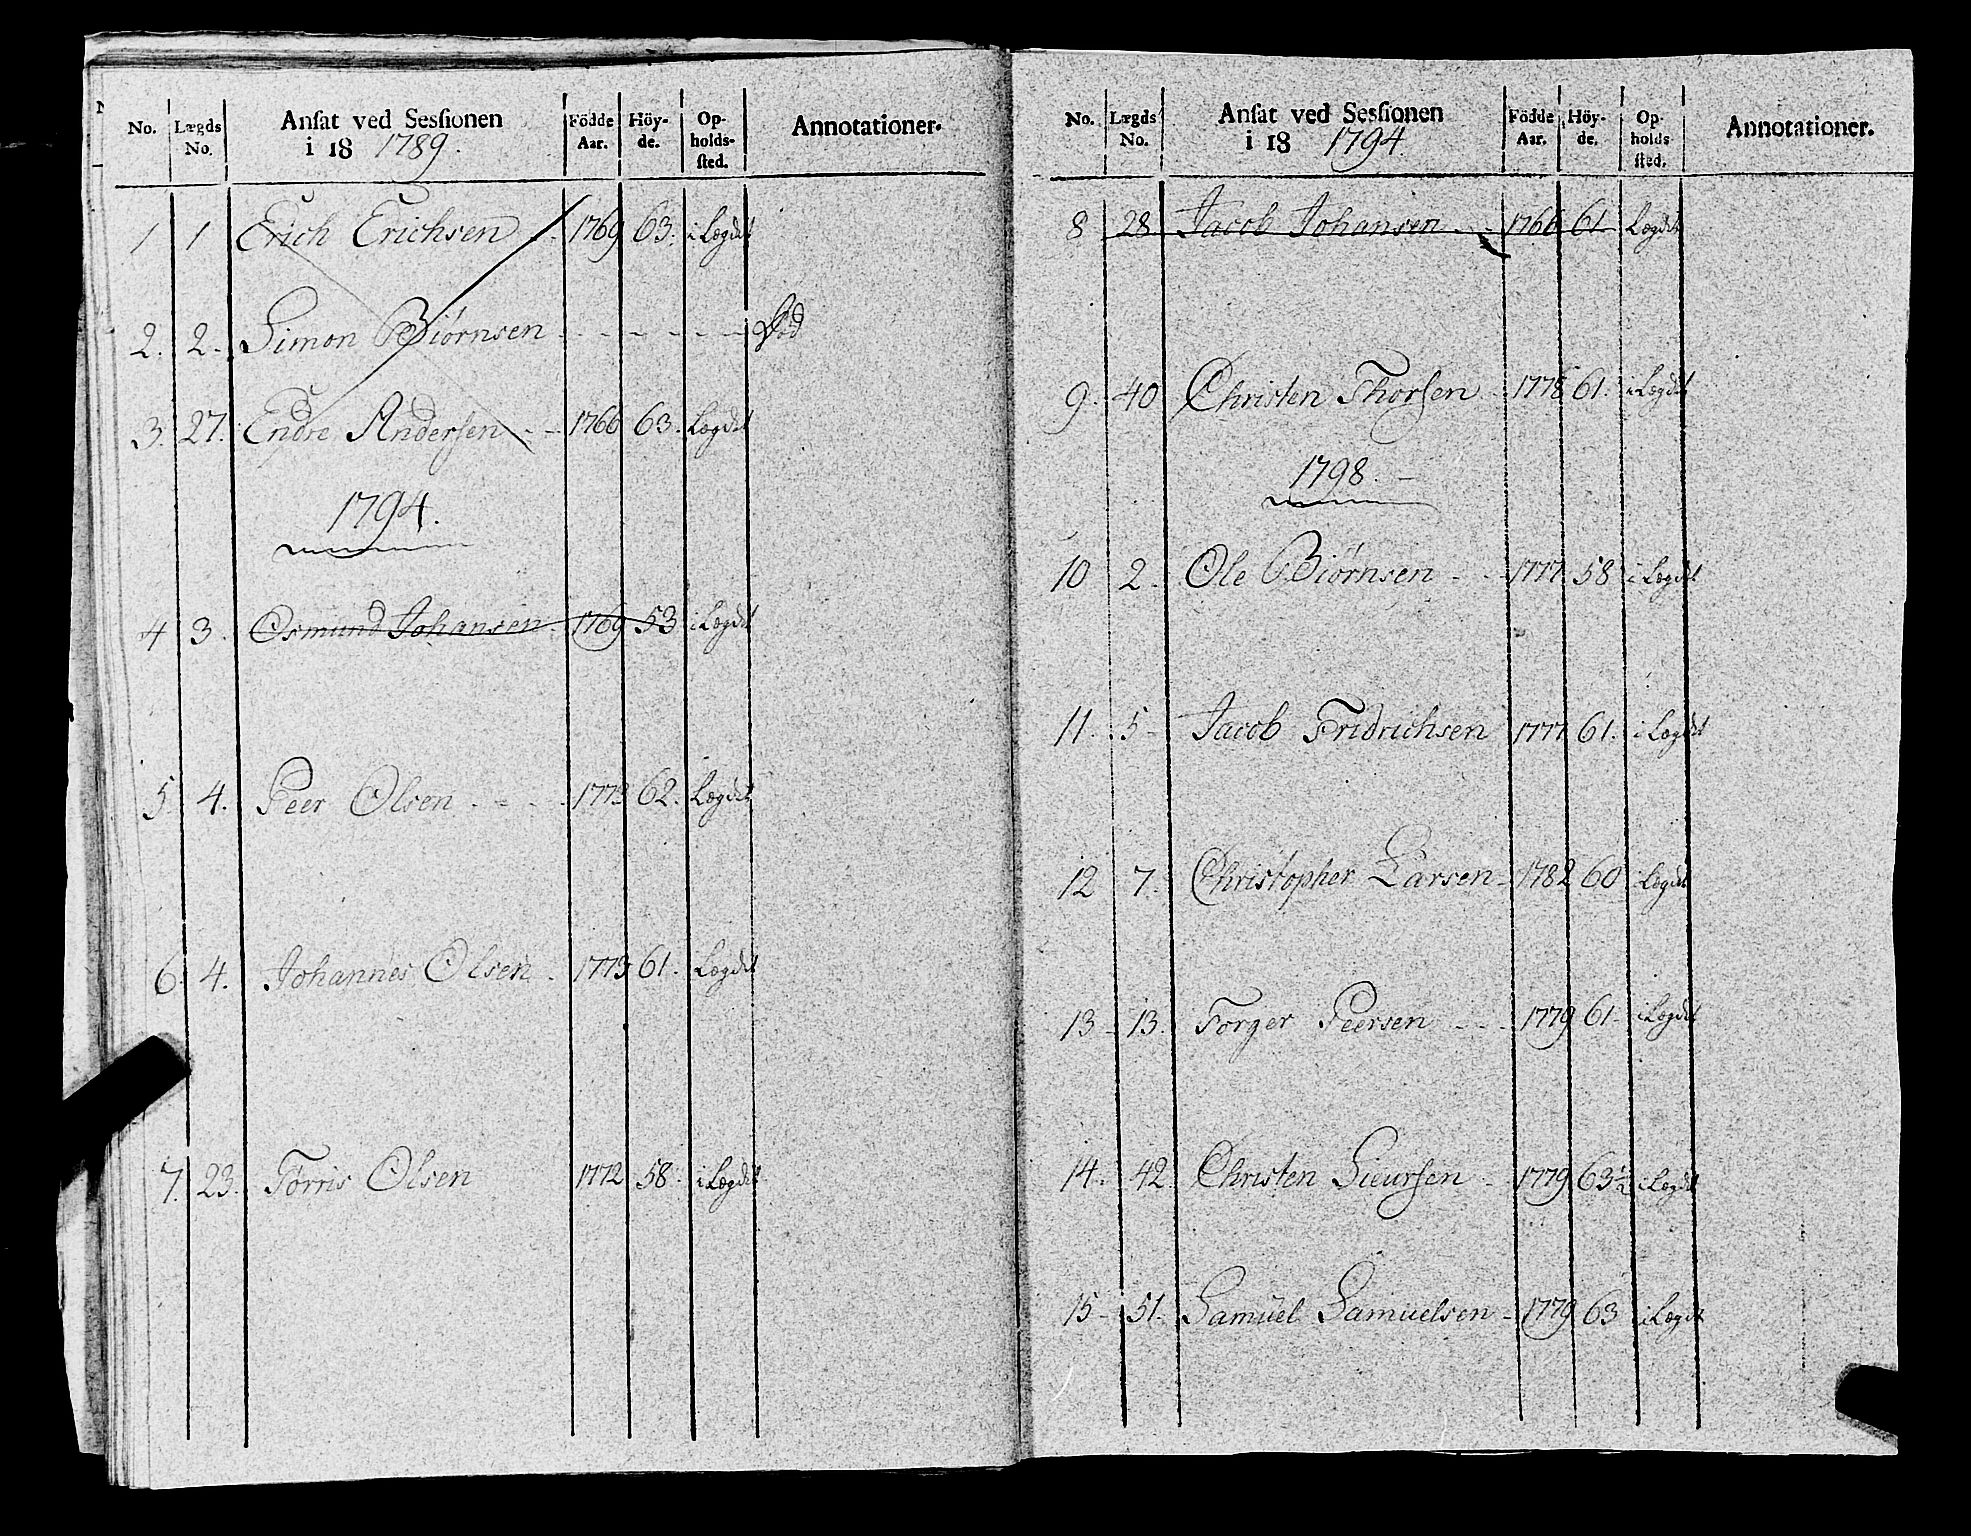 No. Lægds No. Ansat ved Sessionen i 18 1789. Födde Aar. Höyde. Opholdssted. Annotationer.
1 1 Erich Erichsen 1769 63. i Lægdet
2. 2. Simon Biørnsen - - - - - Død
3. 27. Endre Andersen - - 1766 63. Lægdet
1794.
4 3. Osmund Johansen 1769 53 i Lægdet
5. 4. Peer Olsen - - - 1773 62. Lægdet
6. 4. Johannes Olsen. 1773 61. Lægdet
7. 23. Torris Olsen 1772 58. i Lægdet
No. Lægds No. Ansat ved Sessionen i 18 1794 Födde Aar. Höyde. Opholdssted. Annotationer.
8 28. Jacob Johansen - - 1766 61 Lægdet
9. 40 Christen Thorsen 1778 61. i Lægdet
1798. -
10 2. Ole Biørnsen - - 1777 58 i Lægdet
11. 5 Jacob Fridrichsen 1777 61. i Lægdet
12 7. Christopher Larsen - 1782 60 i Lægdet
13 - 13. Torger Peersen - - - 1779 61 - i Lægdet
14. 42. Christen Sieursen - 1779 63 1/2 i Lægdet
15 - 51. Samuel Samuelsen - 1779 63 i Lægdet